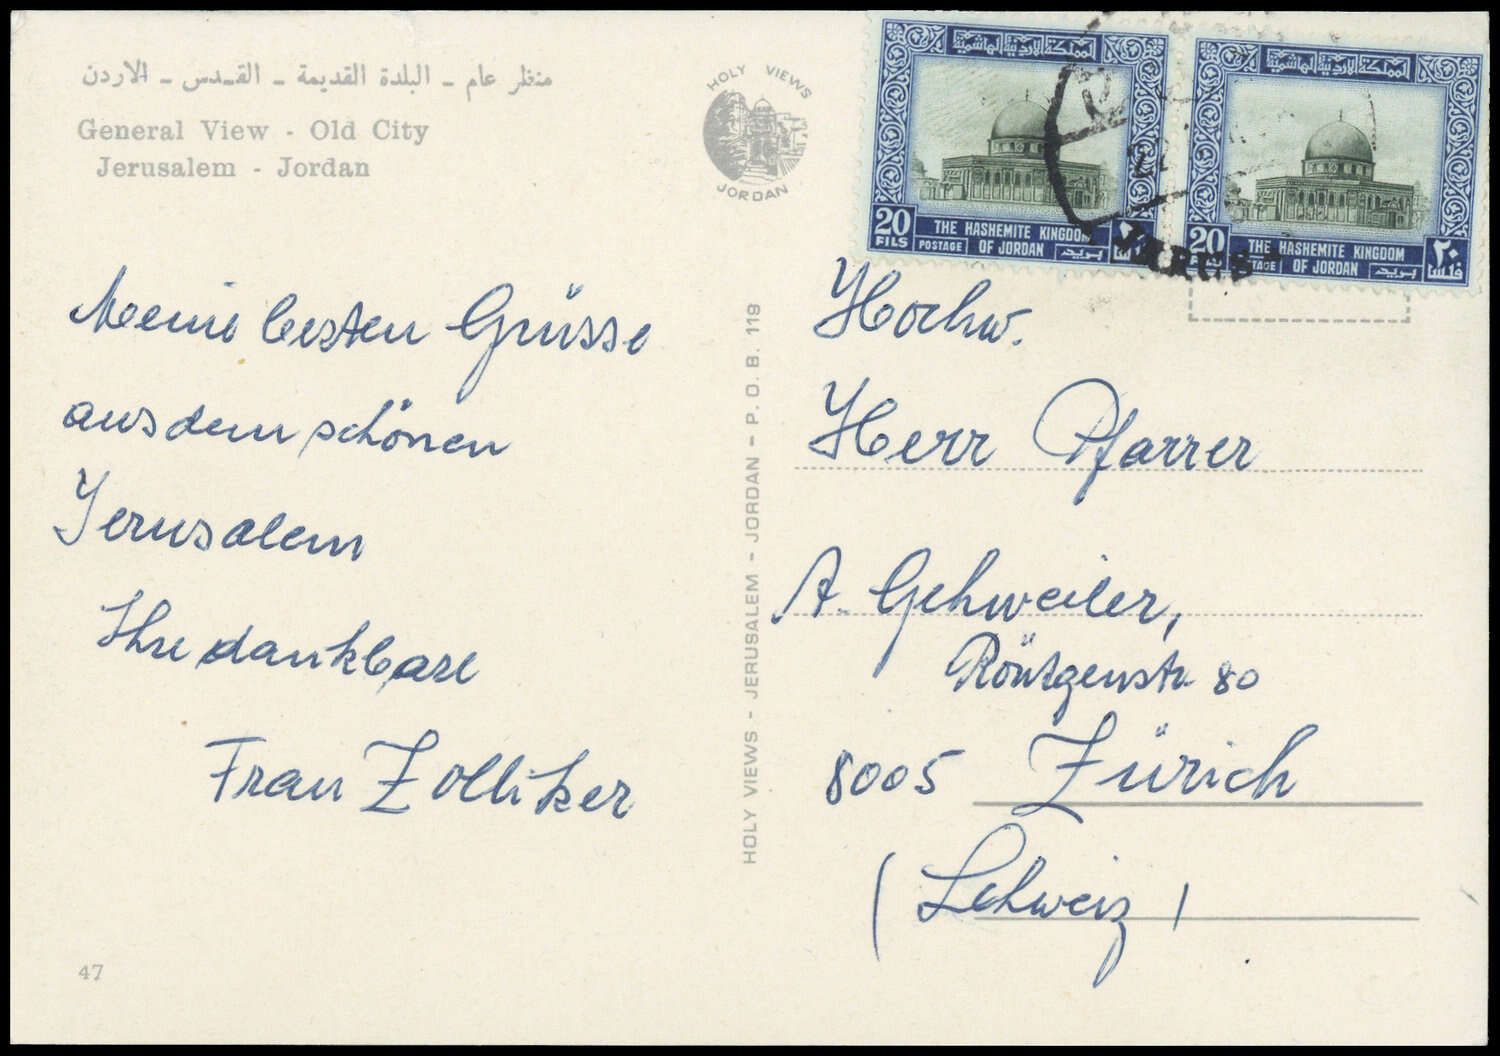 منظر عام - البلدة القديمة - القدس - الاردن
General View - Old City
Jerusalem - Jordan
HOLY VIEWS
JORDAN
المملكة الاردنية الهاشمية
20
FILS
THE HASHEMITE KINGDOM
POSTAGE OF JORDAN بريد
المملكة الاردنية الهاشمية
20
THE HASHEMITE KINGDOM
OF JORDAN بريد
٢٠
فلس
Meine besten Grüsse
aus dem schönen
Jerusalem
Ihre dankbare
Frau Zolliker
47
HOLY VIEWS - JERUSALEM - JORDAN - P. O. B. 119
Hochw.
Herr Pfarrer
A. Gehweiler,
Röntgenstr. 80
8005 Zürich
(Schweiz)